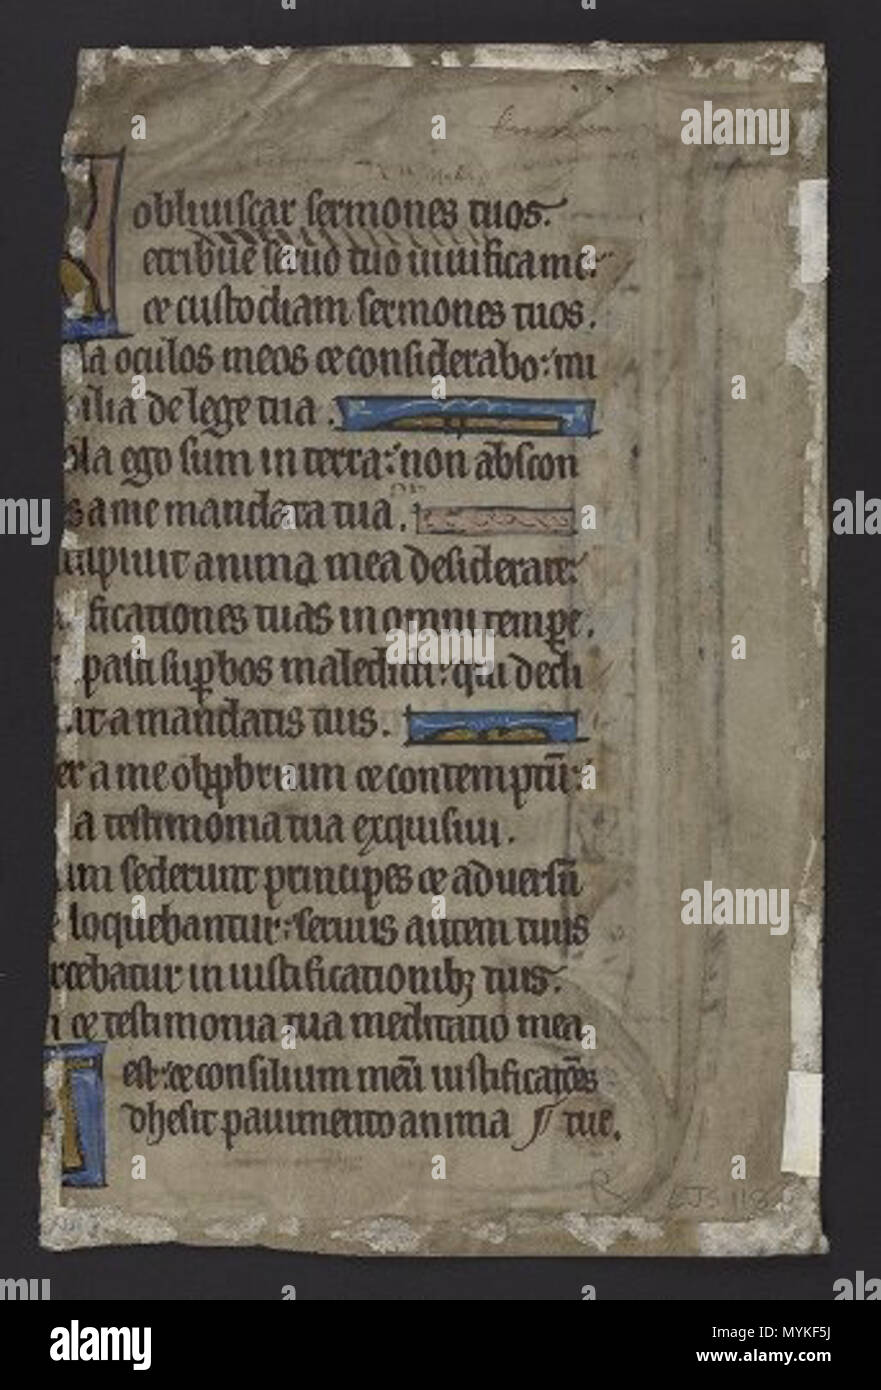 obliuiscar sermones tuos.
etribue seruo tuo uiuifica me:
et custodiam sermones tuos.
la oculos meos et considerabo: mi
ilia de lege tua.
ola ego sum in terra: non abscon
s a me mandata tua.
cupiuit anima mea desiderare:
ificationes tuas in omni tempe.
pasti supbos maledicti: qui decli
nt a mandatis tuis.
er a me obpbrium et contemptū:
a testimonia tua exquisiui.
im sederunt principes et aduersū
e loquebantur: seruus autem tuus
rcebatur in iustificationibꝫ tuis.
n et testimonia tua meditatio mea
est: et consilium meū iustificatōes
dhesit pauimento anima tue.
LJS 118
alamy
Image ID: MYKF5J
www.alamy.com